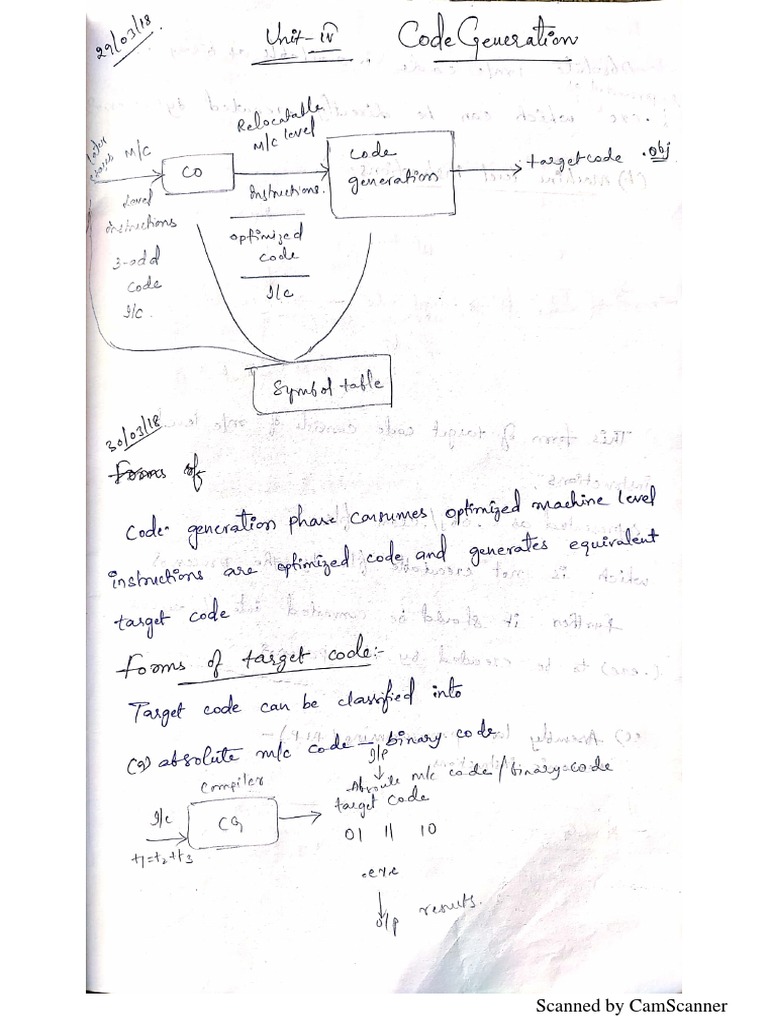 29/03/18
Unit-IV Code Generation
M/C
Relocatable
M/c level
CO
code
generation
target code .obj
level
instructions
instructions.
3-add
code
I/c.
optimized
code
I/c
Symbol table
30/03/18
Forms of
Code generation phase consumes optimized machine level
instructions are optimized code and generates equivalent
target code
Forms of target code:-
Target code can be classified into
(a) absolute m/c code - binary code
I/p
Compiler
I/c
t1=t2+t3
CG
Absoute m/c code / binary code
target code
01 11 10
.exe
O/p results.
Scanned by CamScanner